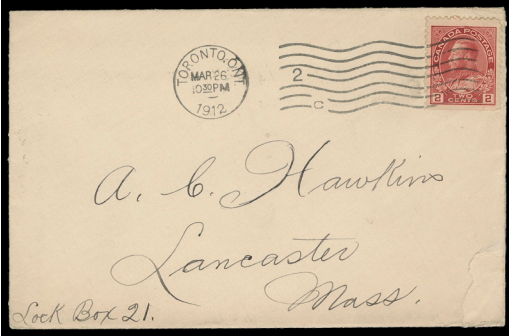 TORONTO.ONT.
MAR 26
10 30 PM
1912
2
C
CANADA POSTAGE
2 TWO CENTS 2
A. C. Hawkins
Lancaster
Mass.
Lock Box 21.